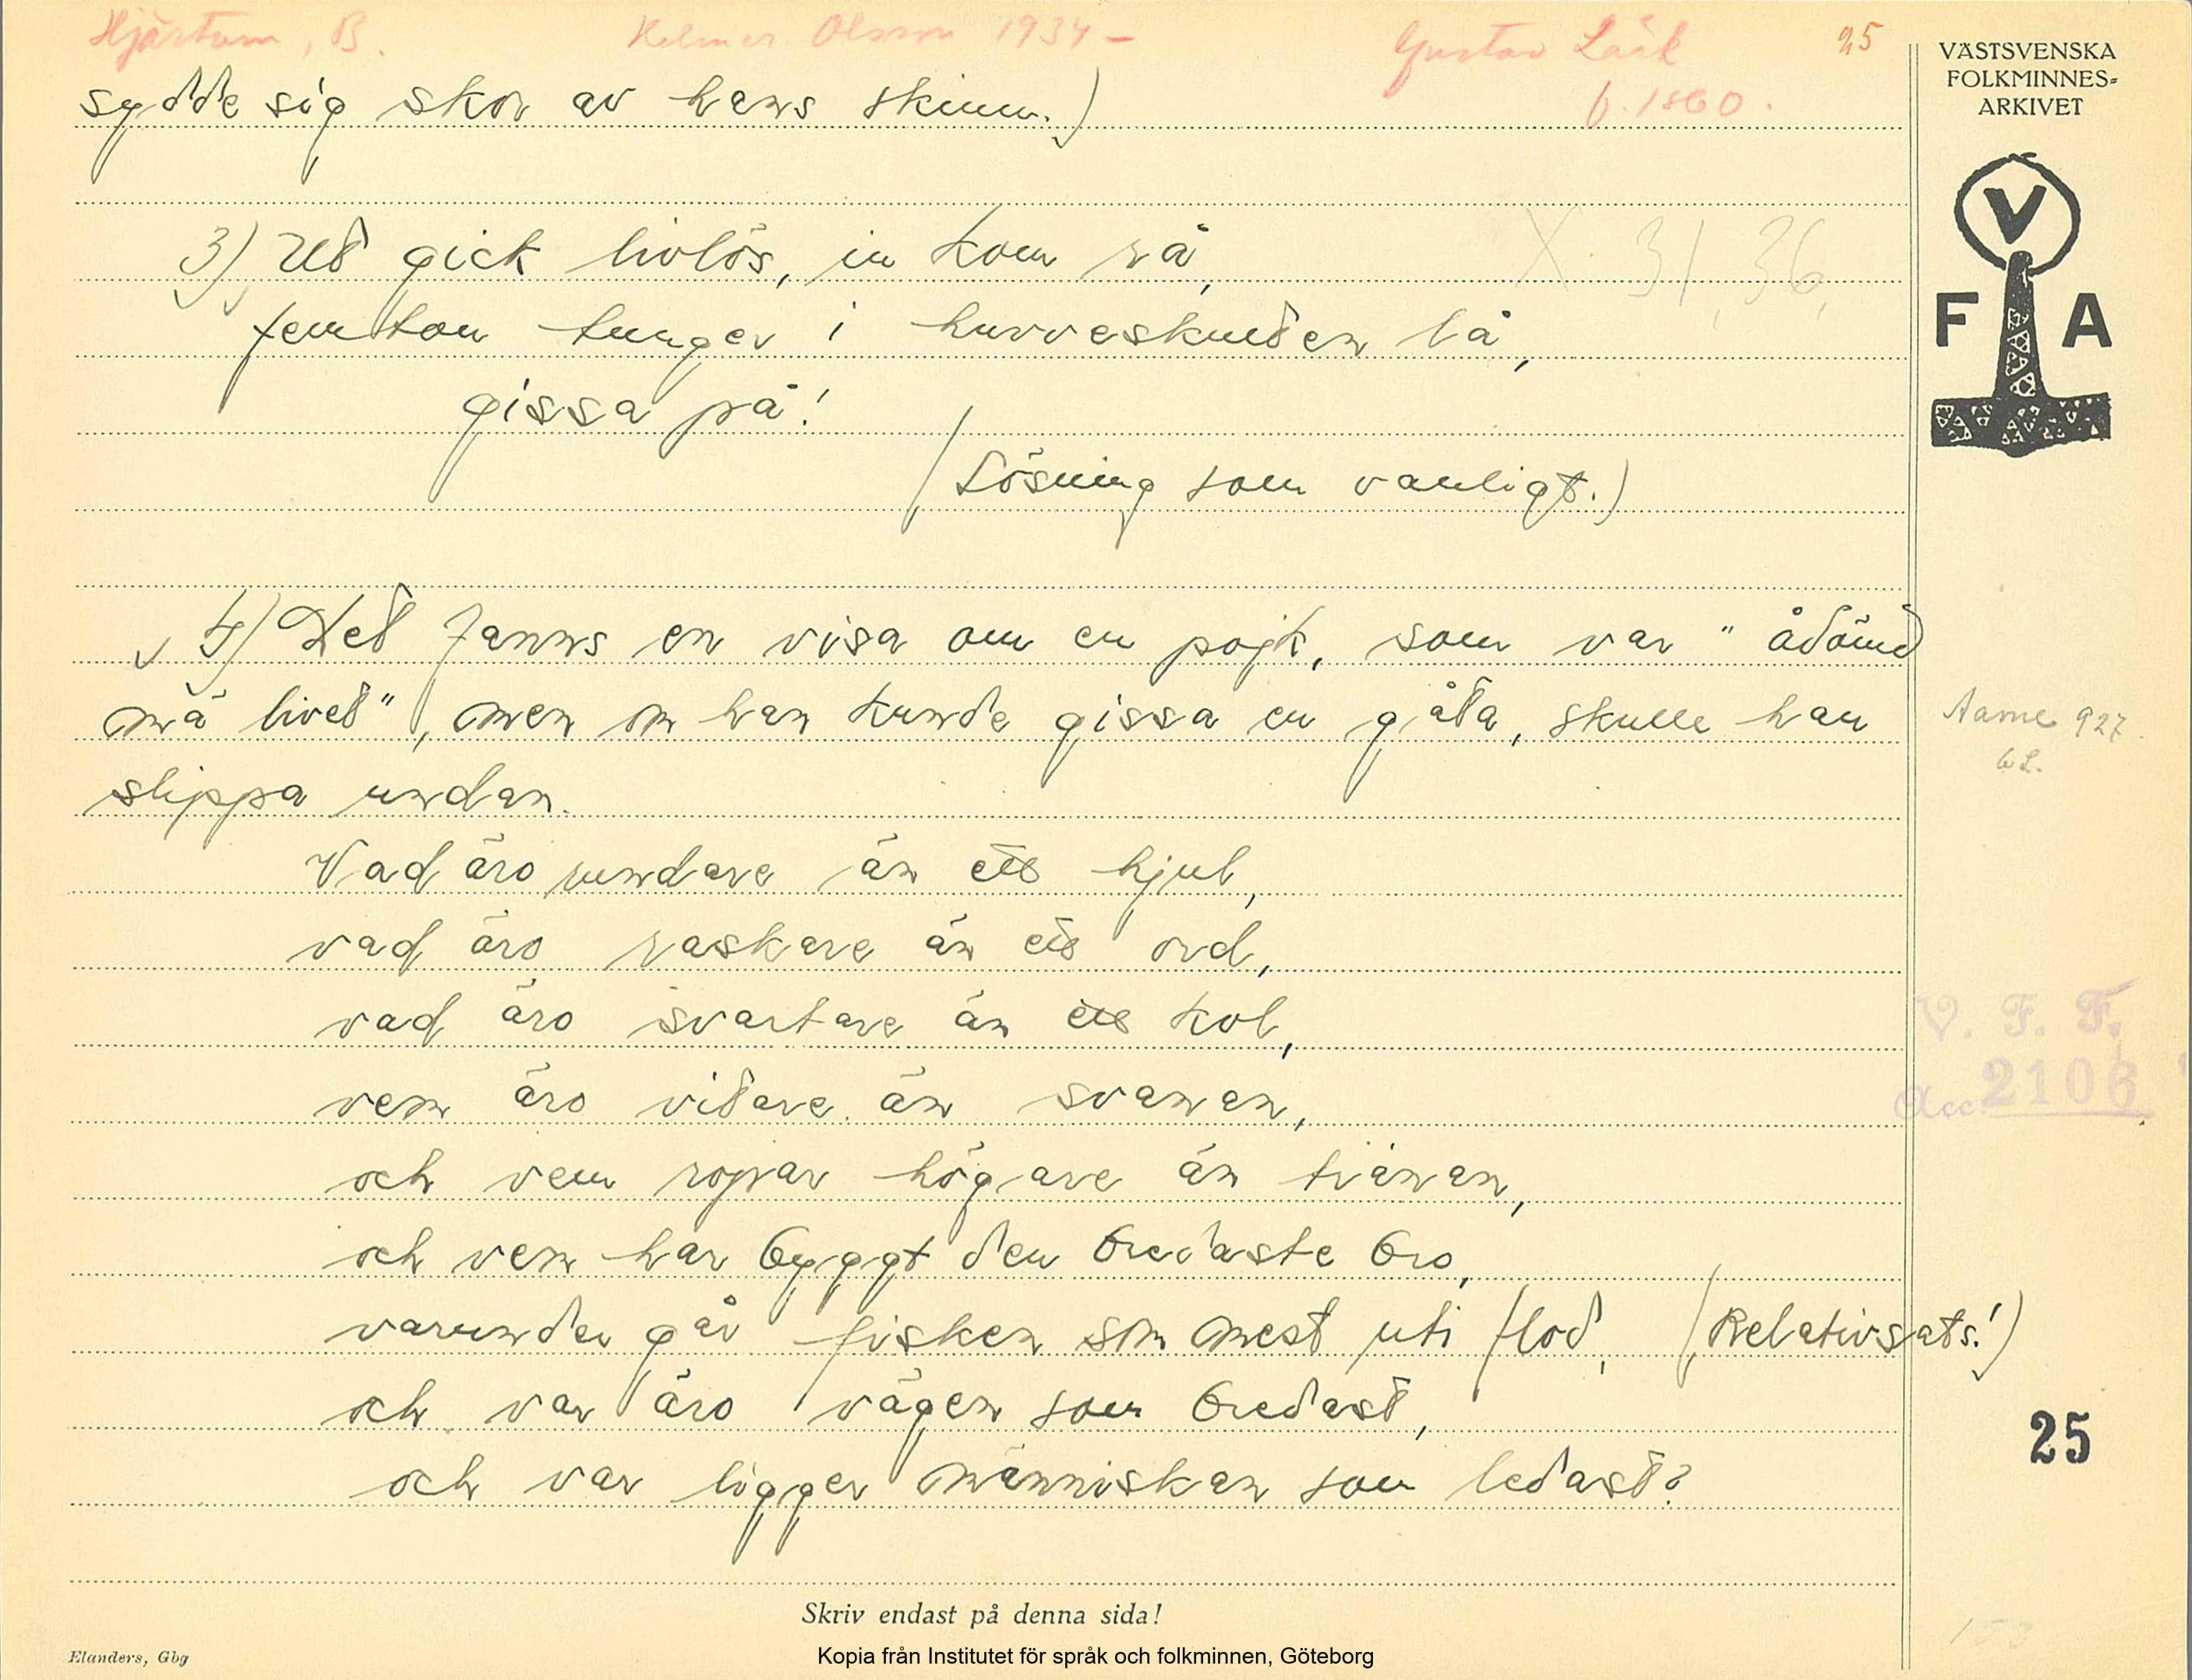 Hjärtum, B. Helmer Olsson 1934 – Gustav Lärk 25
f. 1860.
VÄSTSVENSKA
FOLKMINNES-
ARKIVET
V
F A
sydde sig skor av hans skinn.)
3) Ut gick livlös, in kom rå,
femton tunger i hurveskudden lå,
gissa på!
(Lösning som vanligt.)
4) Det fanns en visa om en pojk, som var "ådömd
mä livet", men om han kunde gissa en gåta, skulle han
slippa undan.
Vad äro rundare än ett hjul,
vad äro raskare än ett ord,
vad äro svartare än ett kol,
vem äro vitare än svanen,
och vem ropar högare än tranan,
och vem har byggt den bredaste bro,
varunder går fisken som mest uti flod, (Relativsats!)
och var äro vägen som bredast,
och var ligger människan som ledast?
Aarne 927
V. F. F.
Acc. 2106
25
Skriv endast på denna sida!
Elanders, Gbg
Kopia från Institutet för språk och folkminnen, Göteborg